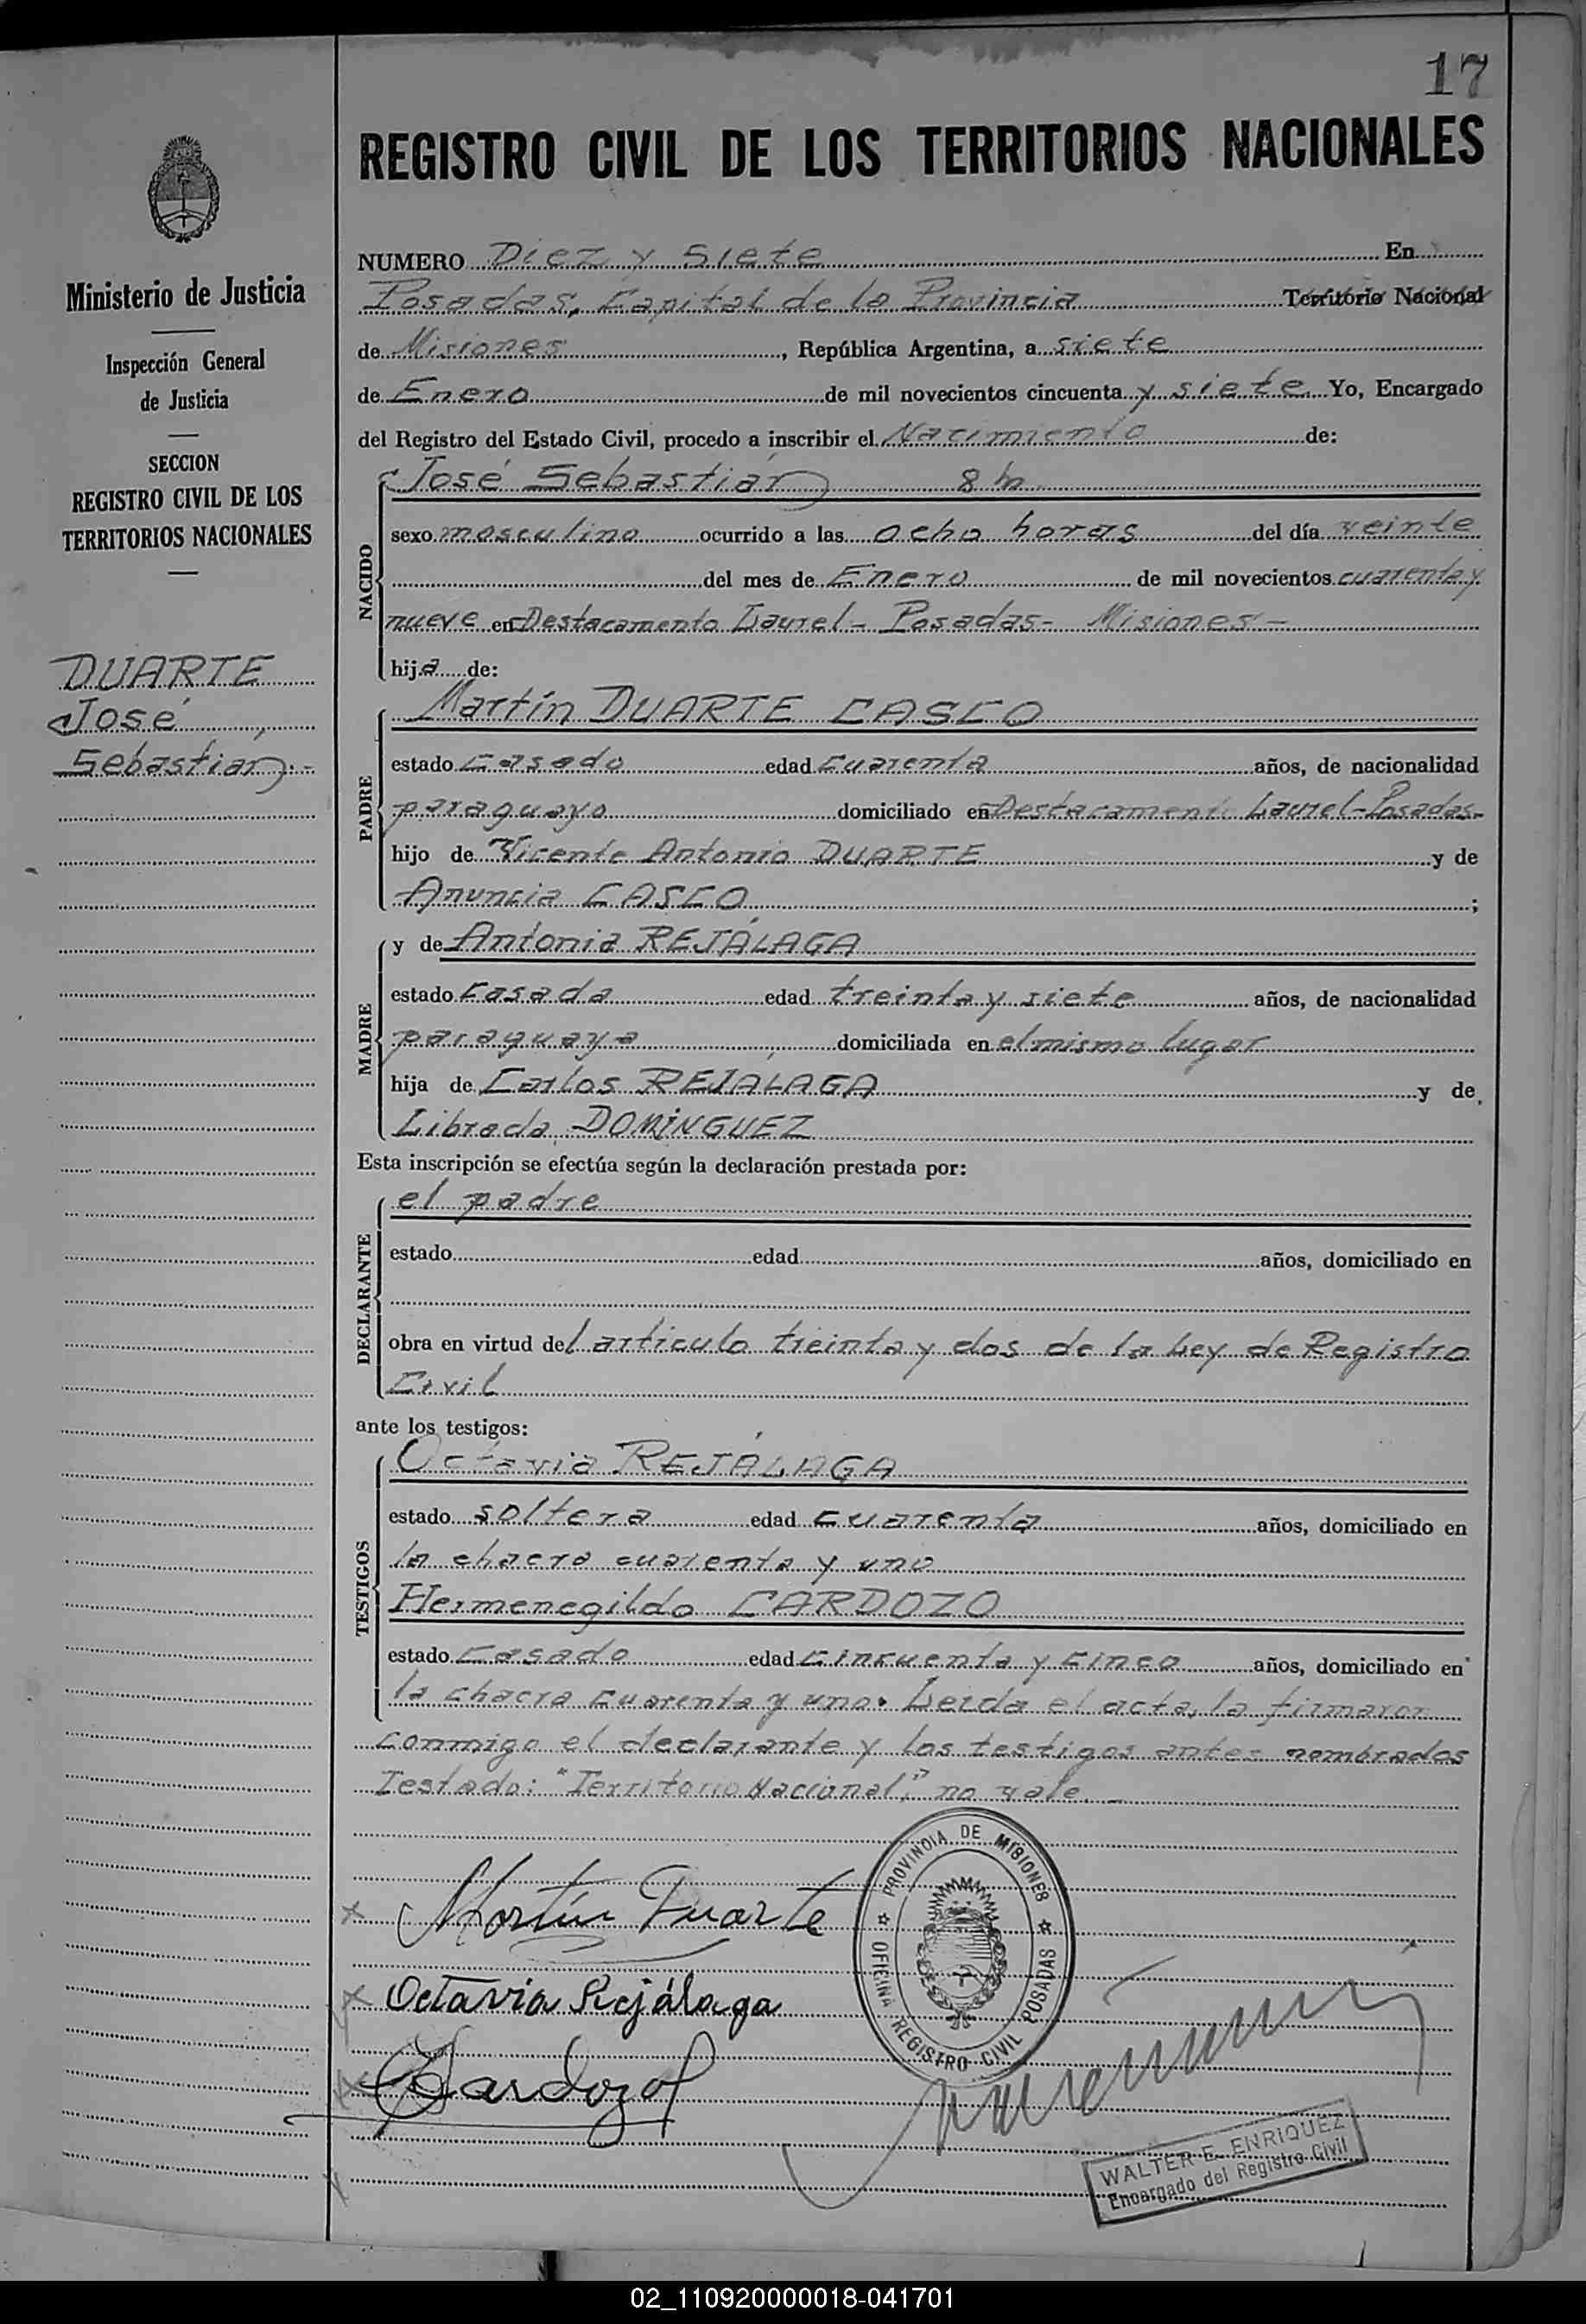 17
REGISTRO CIVIL DE LOS TERRITORIOS NACIONALES
Ministerio de Justicia
Inspección General
de Justicia
SECCION
REGISTRO CIVIL DE LOS
TERRITORIOS NACIONALES
DUARTE
José
Sebastián.-
NUMERO Diez y siete En
Posadas, Capital de la Provincia Territorio Nacional
de Misiones, República Argentina, a siete
de Enero de mil novecientos cincuenta y siete Yo, Encargado
del Registro del Estado Civil, procedo a inscribir el Nacimiento de:
NACIDO
José Sebastián 8 h
sexo masculino ocurrido a las ocho horas del día veinte
del mes de Enero de mil novecientos cuarenta y
nueve en Destacamento Laurel - Posadas - Misiones -
hijo de:
PADRE
Martín DUARTE CASCO
estado casado edad cuarenta años, de nacionalidad
paraguayo domiciliado en Destacamento Laurel-Posadas-
hijo de Vicente Antonio DUARTE y de
Anuncia CASCO ;
MADRE
y de Antonia REJÁLAGA
estado casada edad treinta y siete años, de nacionalidad
paraguaya domiciliada en el mismo lugar
hija de Carlos REJÁLAGA y de
Librada DOMINGUEZ
Esta inscripción se efectúa según la declaración prestada por:
DECLARANTE
el padre
estado edad años, domiciliado en
obra en virtud del articulo treinta y dos de la Ley de Registro
Civil
ante los testigos:
TESTIGOS
Octavia REJÁLAGA
estado soltera edad cuarenta años, domiciliado en
la chacra cuarenta y uno
Hermenegildo CARDOZO
estado casado edad cincuenta y cinco años, domiciliado en
la chacra cuarenta y uno. Leida el acta, la firmaron
conmigo el declarante y los testigos antes nombrados
Testado: "Territorio Nacional," no vale.-
Martín Duarte
Octavia Rejálaga
Cardozo
PROVINCIA DE MISIONES
OFICINA REGISTRO CIVIL POSADAS
WALTER E. ENRIQUEZ
Encargado del Registro Civil
02_110920000018-041701